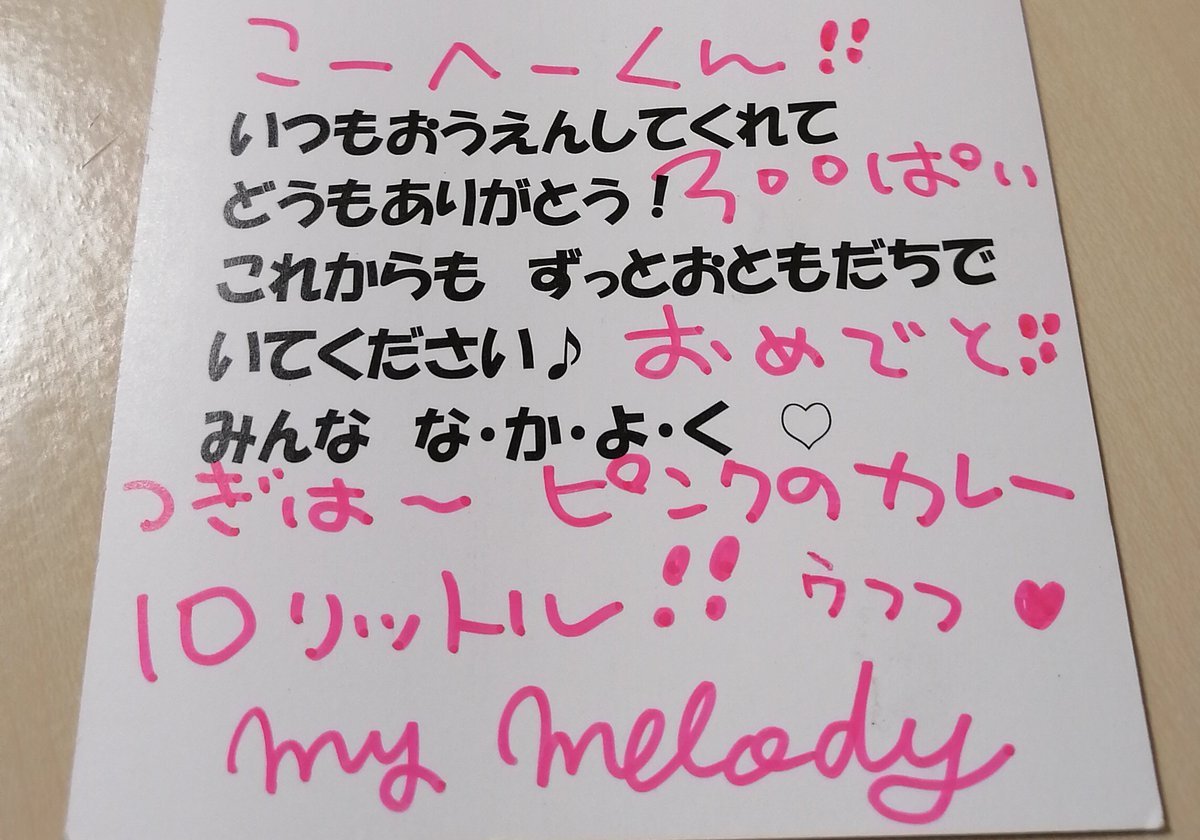 こーへーくん!!
いつもおうえんしてくれて
どうもありがとう！300ぱい
これからも ずっとおともだちで
いてください♪ おめでと!!
みんな な・か・よ・く ♡
つぎは〜 ピンクのカレー
10リットル!! ウフフ ♥
my melody